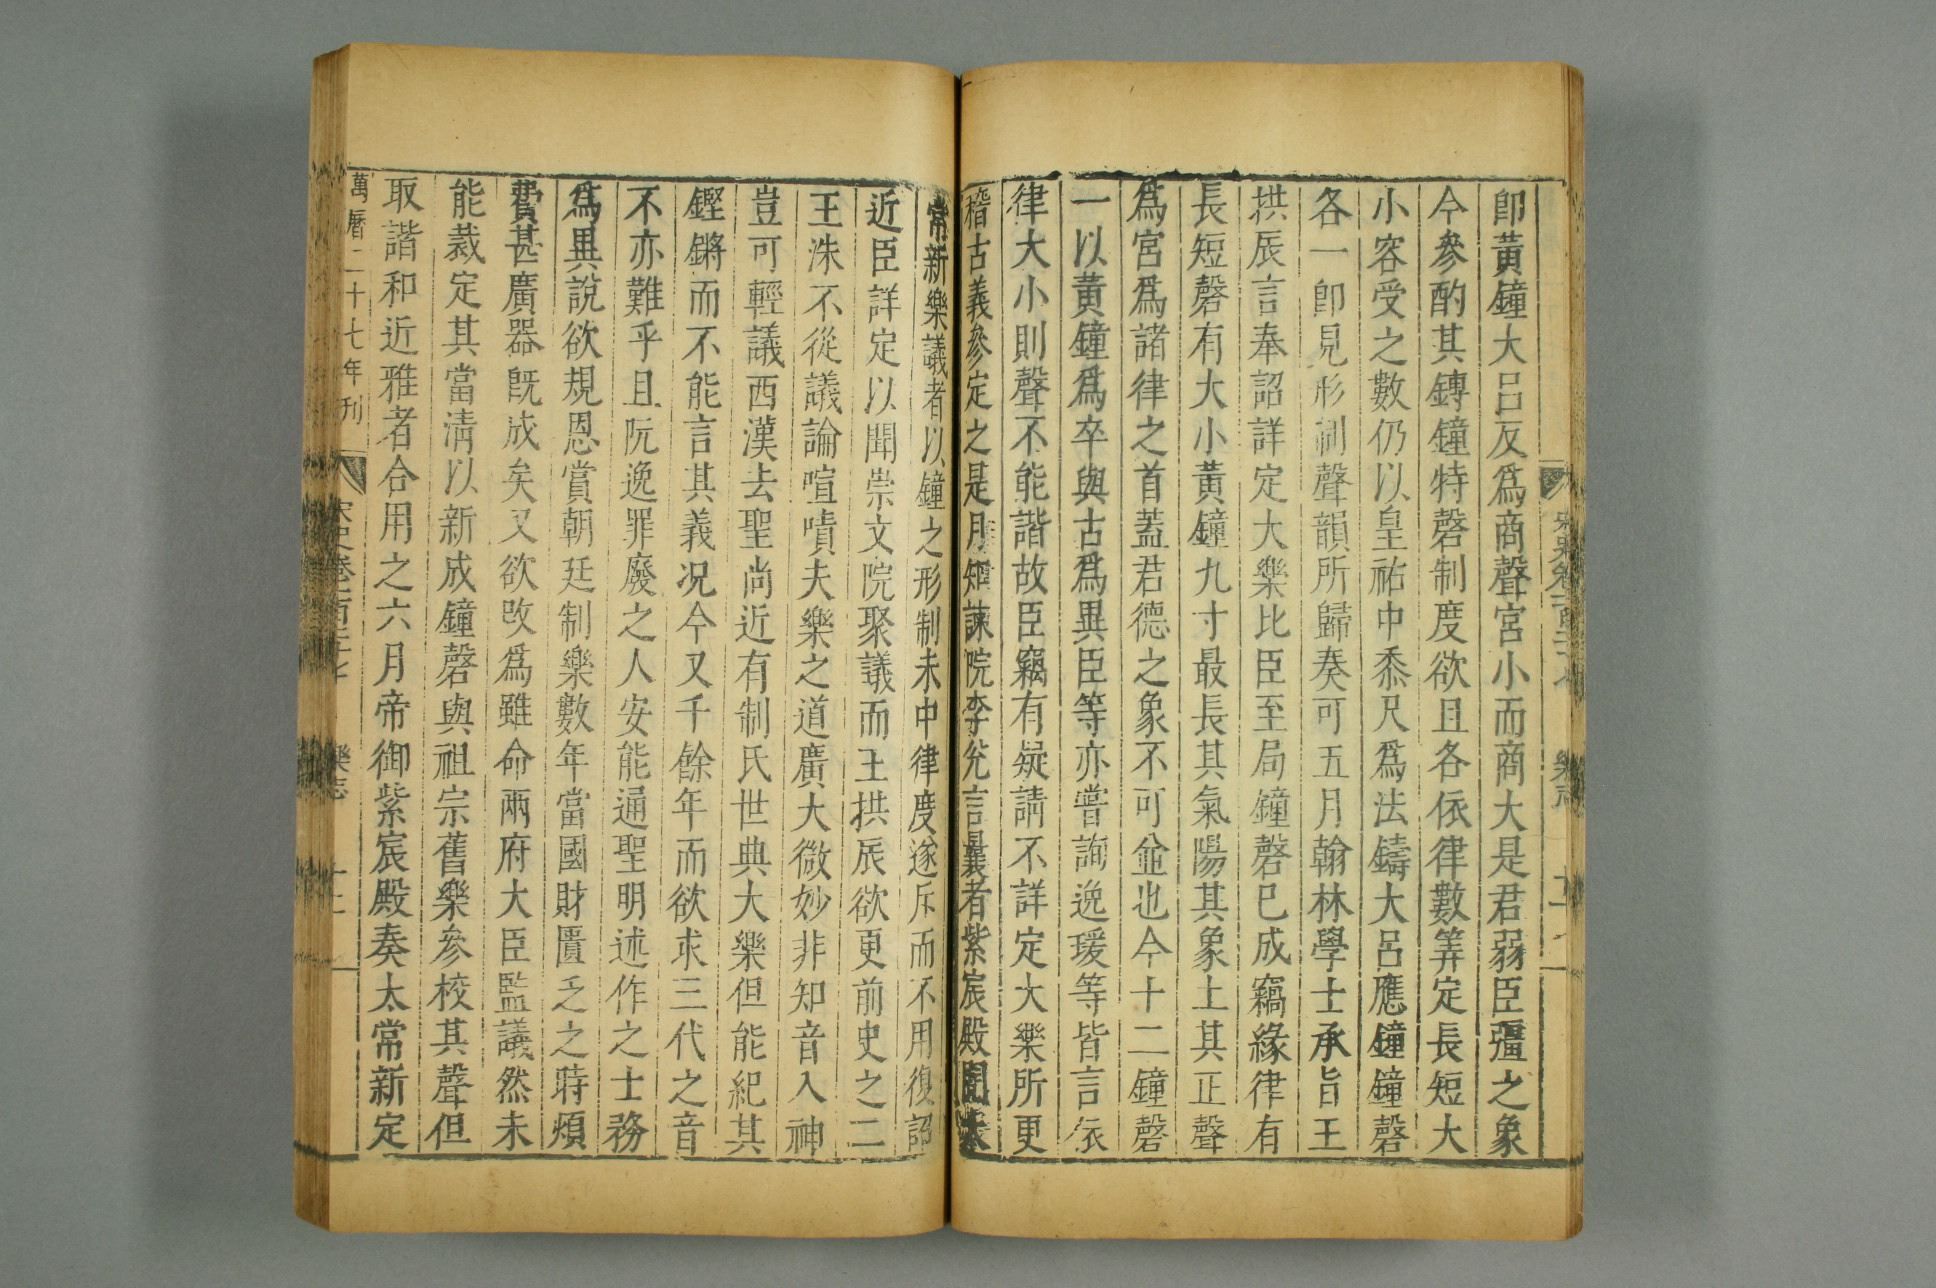 卽黃鐘大呂反爲商聲宮小而商大是君弱臣彊之象
今參酌其鎛鐘特磬制度欲且各依律數筭定長短大
小容受之數仍以皇祐中黍尺爲法鑄大呂應鐘鐘磬
各一卽見形制聲韻所歸奏可五月翰林學士承旨王
拱辰言奉詔詳定大樂比臣至局鐘磬已成竊緣律有
長短磬有大小黃鐘九寸最長其氣陽其象土其正聲
爲宮爲諸律之首蓋君德之象不可並也今十二鐘磬
一以黃鐘爲卒與古爲異臣等亦嘗詢逸瑗等皆言依
律大小則聲不能諧故臣竊有疑請不詳定大樂所更
稽古義參定之是月知諫院李兊言曩者紫宸殿閱太
常新樂議者以鐘之形制未中律度遂斥而不用復詔
近臣詳定以聞崇文院聚議而王拱辰欲更前史之二
王洙不從議論喧嘖夫樂之道廣大微妙非知音入神
豈可輕議西漢去聖尚近有制氏世典大樂但能紀其
鏗鏘而不能言其義况今又千餘年而欲求三代之音
不亦難乎且阮逸罪廢之人安能通聖明述作之士務
爲異說欲規恩賞朝廷制樂數年當國財匱乏之時煩
費甚廣器旣成矣又欲改爲雖命兩府大臣監議然未
能裁定其當淸以新成鐘磬與祖宗舊樂參校其聲但
取諧和近雅者合用之六月帝御紫宸殿奏太常新定
萬曆二十七年刊
宋史卷一百二十七
樂志
十二